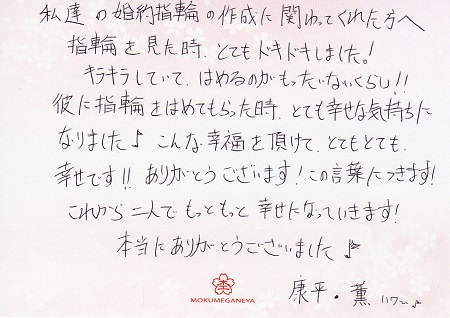 私達の婚約指輪の作成に関わってくれた方へ
指輪を見た時、とてもドキドキしました!
キラキラしていて、はめるのがもったいないくらい!!
彼に指輪をはめてもらった時、とても幸せな気持ちに
なりました♪こんな幸福を頂けて、とてもとても、
幸せです!!ありがとうございます!この言葉につきます!
これから二人でもっともっと幸せになっていきます!
本当にありがとうございました♪
康平・薫
MOKUMEGANEYA